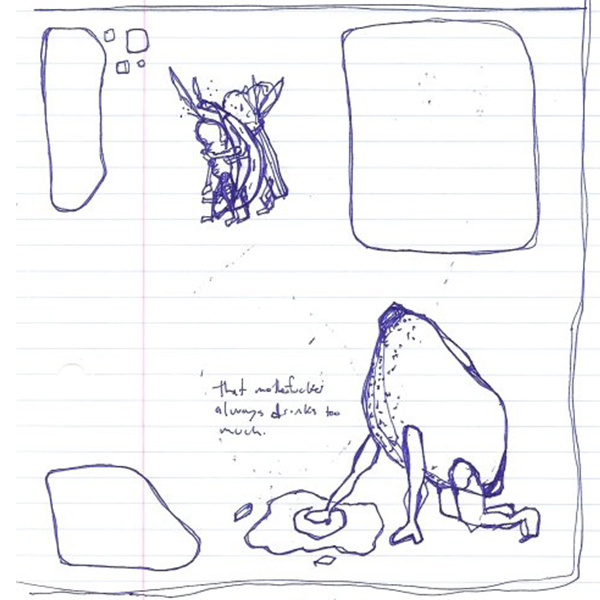 that motherfucker
always drinks too
much.